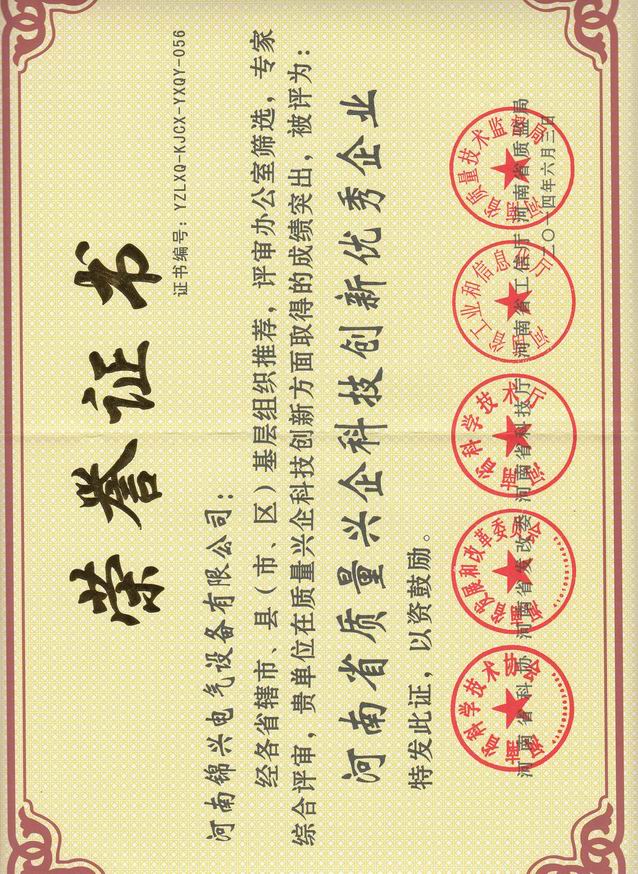 荣誉证书
证书编号：YZLXQ-KJCX-YXQY-056
河南锦兴电气设备有限公司：
经各省辖市、县（市、区）基层组织推荐，评审办公室筛选，专家
综合评审，贵单位在质量兴企科技创新方面取得的成绩突出，被评为：
河南省质量兴企科技创新优秀企业
特发此证，以资鼓励。
河南省科学技术协会
河南省发展和改革委员会
河南省科学技术厅
河南省工业和信息化厅
河南省质量技术监督局
河南省科协 河南省发改委 河南省科技厅 河南省工信厅 河南省质监局
二〇一四年六月三日